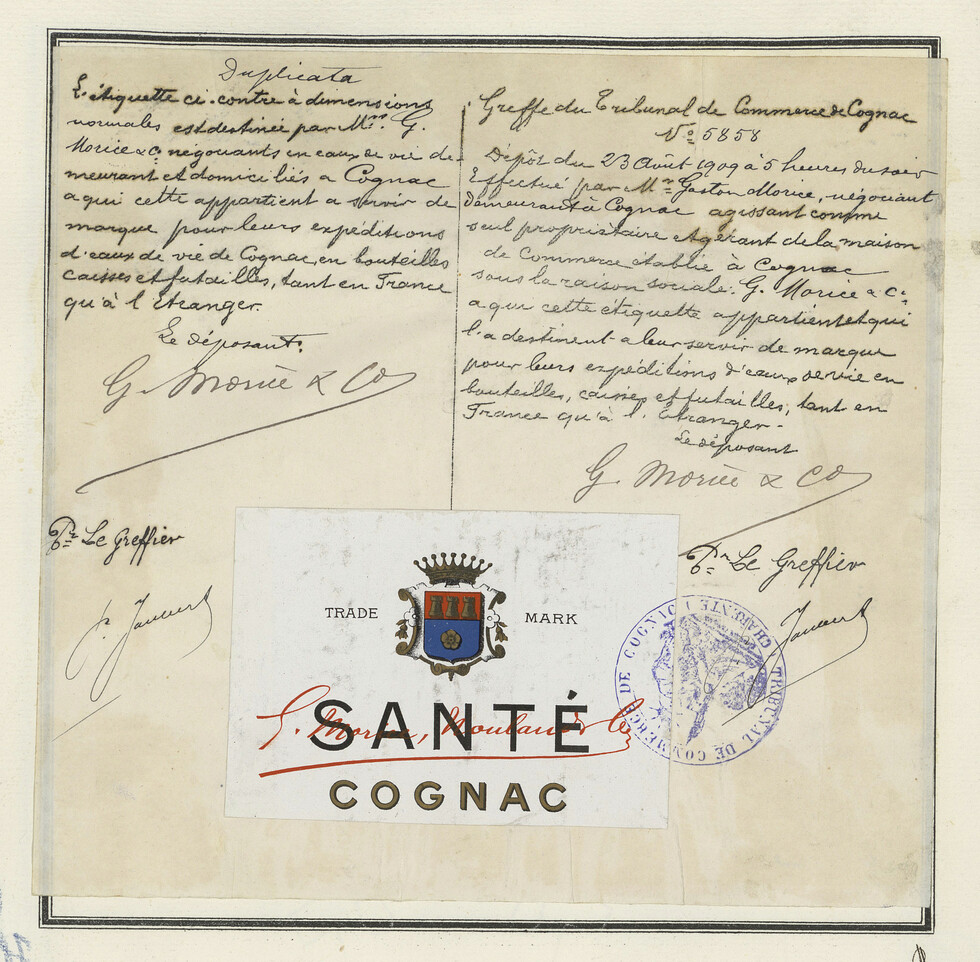 Duplicata
L'étiquette ci-contre à dimensions
normales est destinée par Mrs G.
Morice & Cie négociants en eaux de vie de-
meurant et domiciliés a Cognac
a qui cette appartient a servir de
marque pour leurs expéditions
d'eaux de vie de Cognac, en bouteilles
caisses et futailles, tant en France
qu'à l'Etranger.
Le déposant.
G. Morice & Co
Pr Le Greffier
Greffe du Tribunal de Commerce de Cognac
No 5858
Dépôt du 23 Août 1909 à 5 heures du soir
Effectué par Mr Gaston Morice, négociant
demeurant à Cognac agissant comme
seul propriétaire et gérant de la maison
de Commerce établie à Cognac
sous la raison sociale: G. Morice & Cie
a qui cette étiquette appartient et qui
l'a destinent a leur servir de marque
pour leurs expéditions d'eaux de vie en
bouteilles, caisses et futailles, tant en
France qu'à l'Etranger-
Le déposant
G. Morice & Co
Pr Le Greffier
TRADE MARK
SANTÉ
G. Morice, & Cie
COGNAC
TRIBUNAL DE COMMERCE DE COGNAC (CHARENTE)